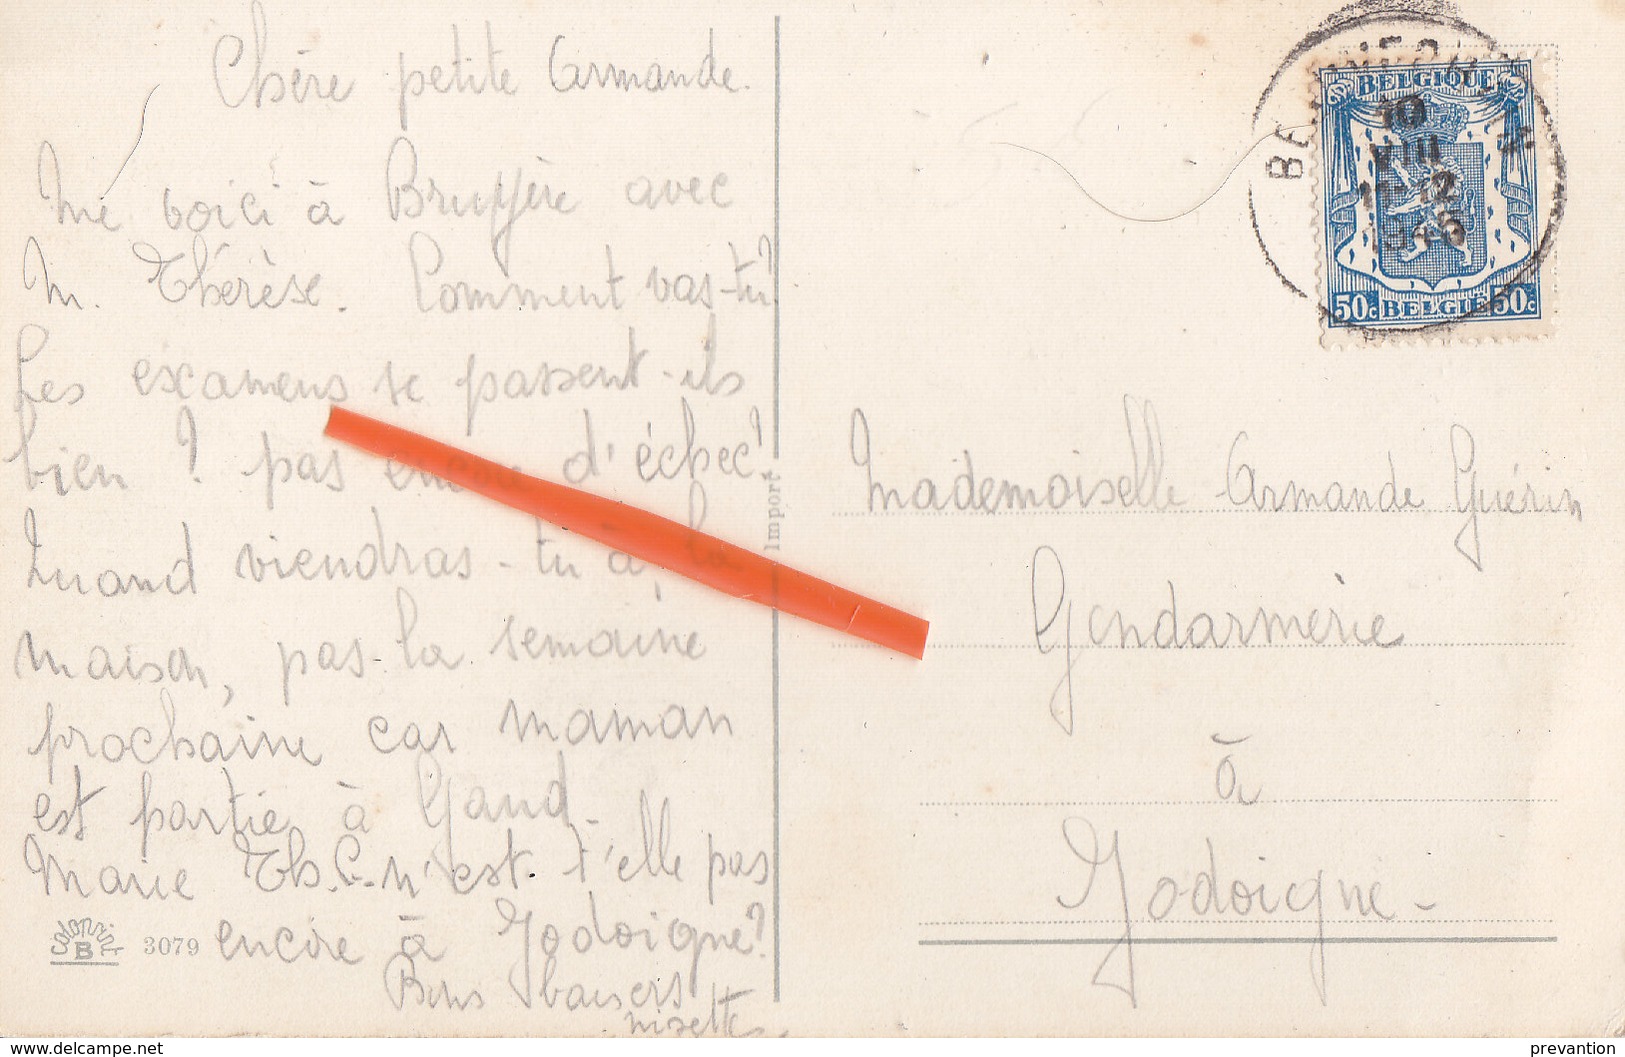 Chère petite Armande.
Me voici à Bruyère avec
M. Thérèse. Comment vas-tu?
Les examens se passent-ils
bien ? pas encore d'échec?
Quand viendras-tu à la
maison, pas la semaine
prochaine car maman
est partie à Gand.
Marie Th. C. n'est-t'elle pas
encore à Jodoigne?
Bons baisers
Colorprint
B
3079
Import
BELGIQUE
10
VIII
11-12
50c BELGIË 50c
Mademoiselle Armande Guérin
Gendarmerie
à
Jodoigne-
www.delcampe.net
prevantion